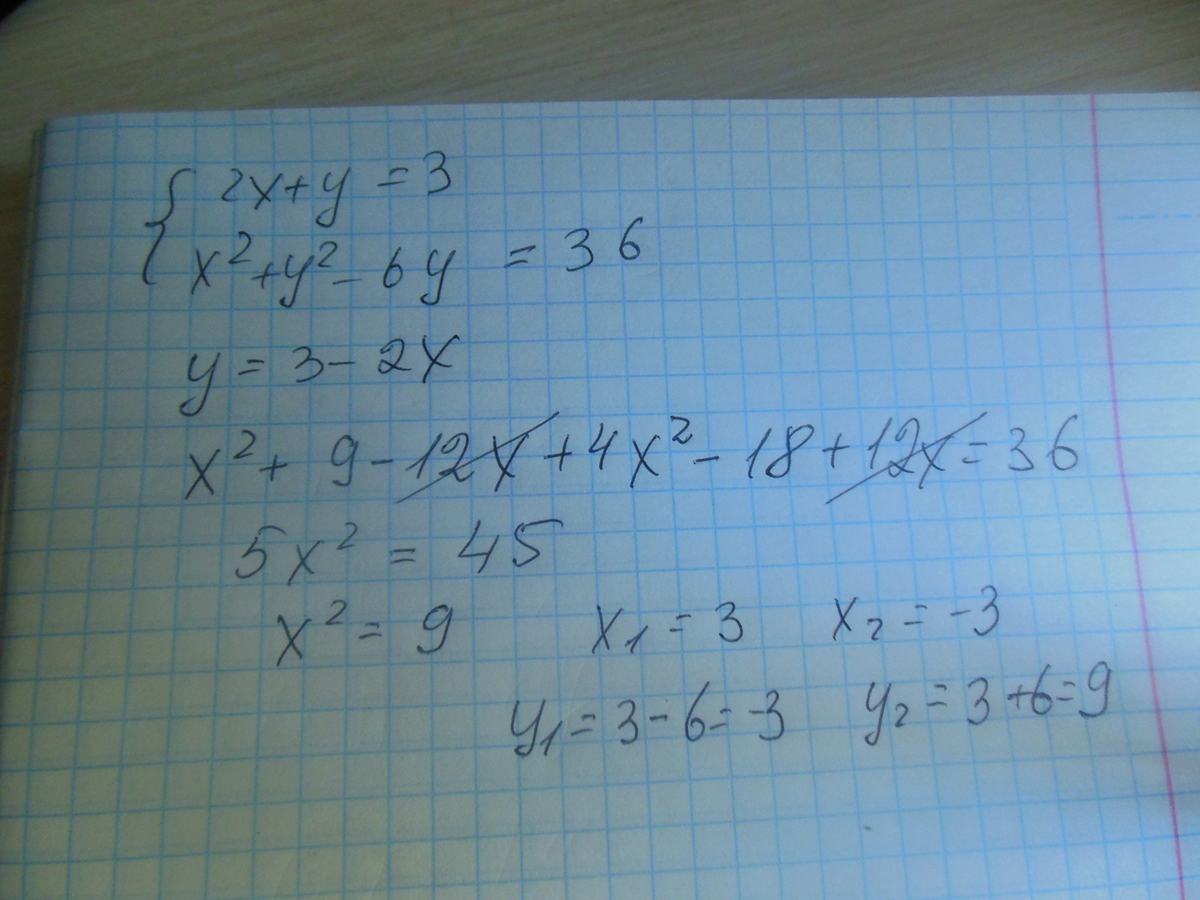 { 2x+y = 3
x²+y²-6y = 36
y = 3-2x
x²+ 9-12x+4x²-18+12x=36
5x² = 45
x² = 9 x₁ = 3 x₂ = -3
y₁ = 3-6=-3 y₂ = 3+6=9